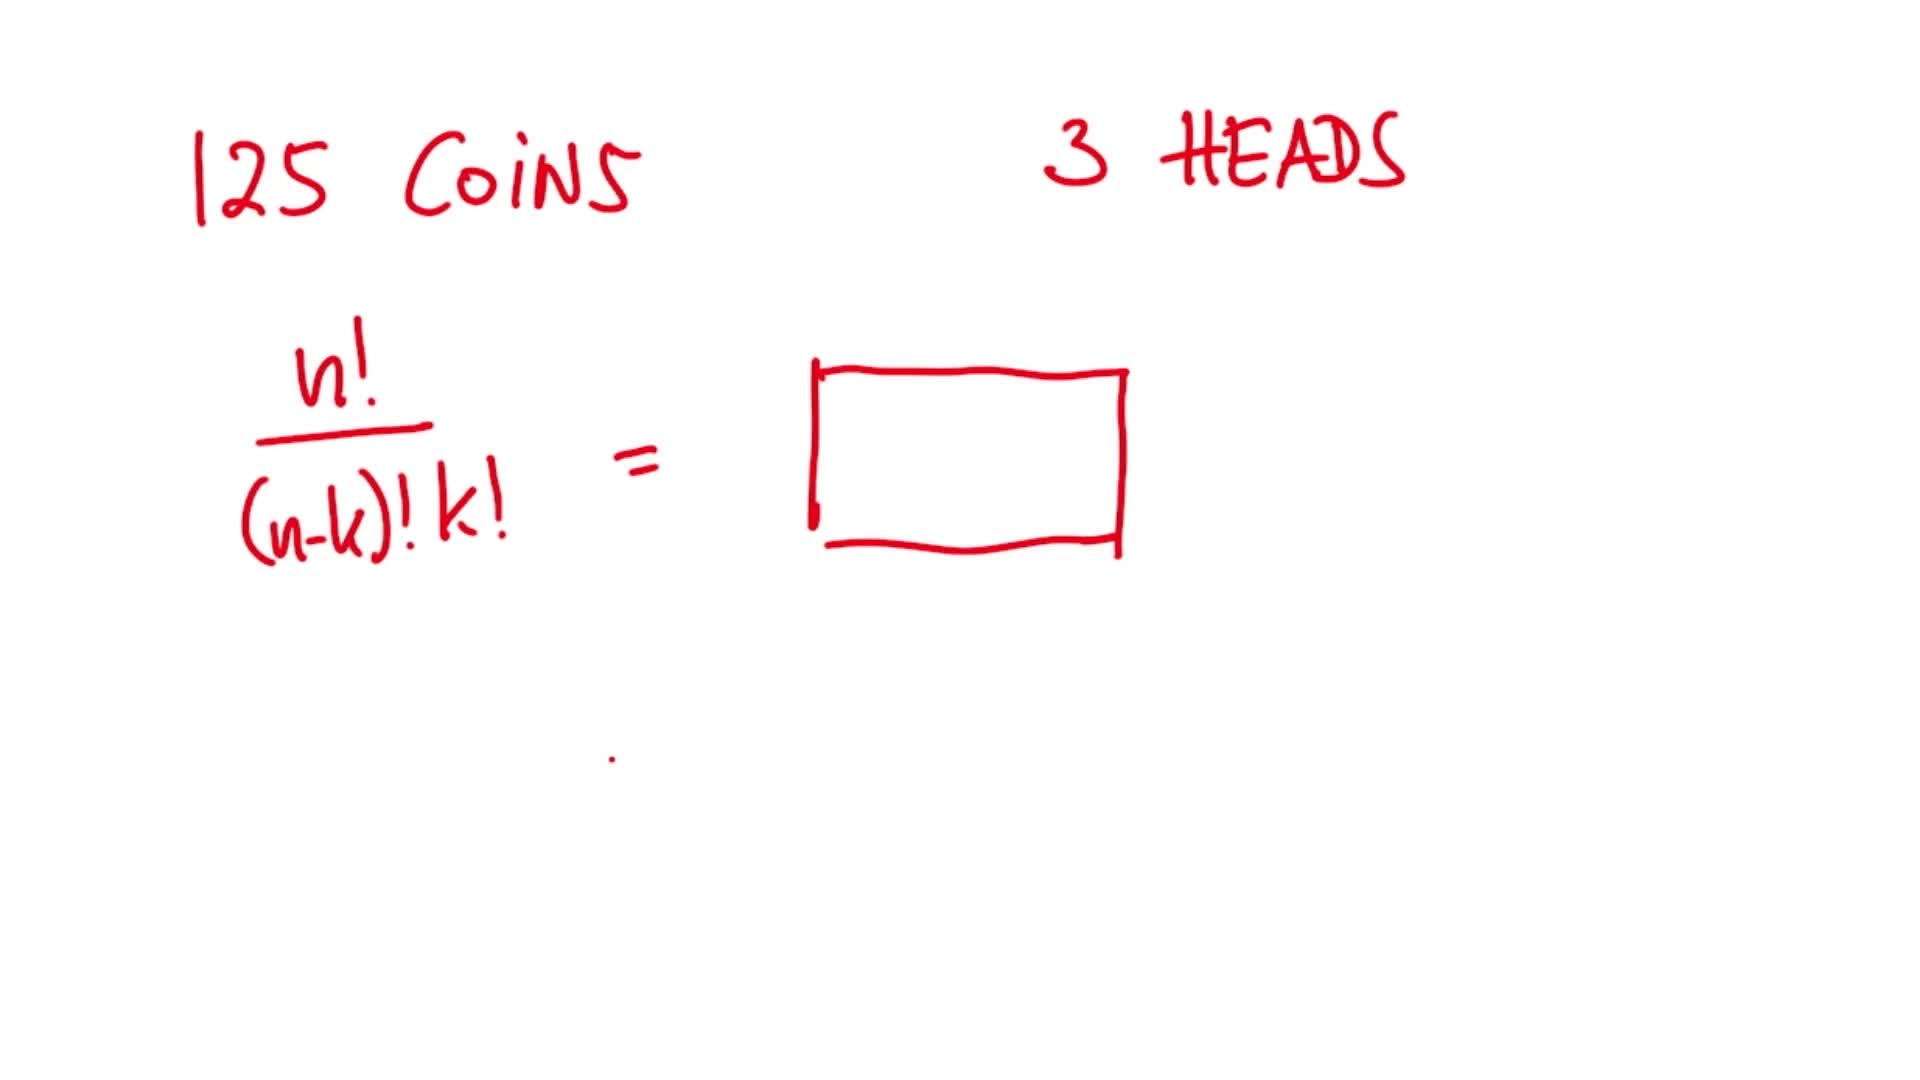 125 COiNS
3 HEADS
n!
(n-k)! k!
=